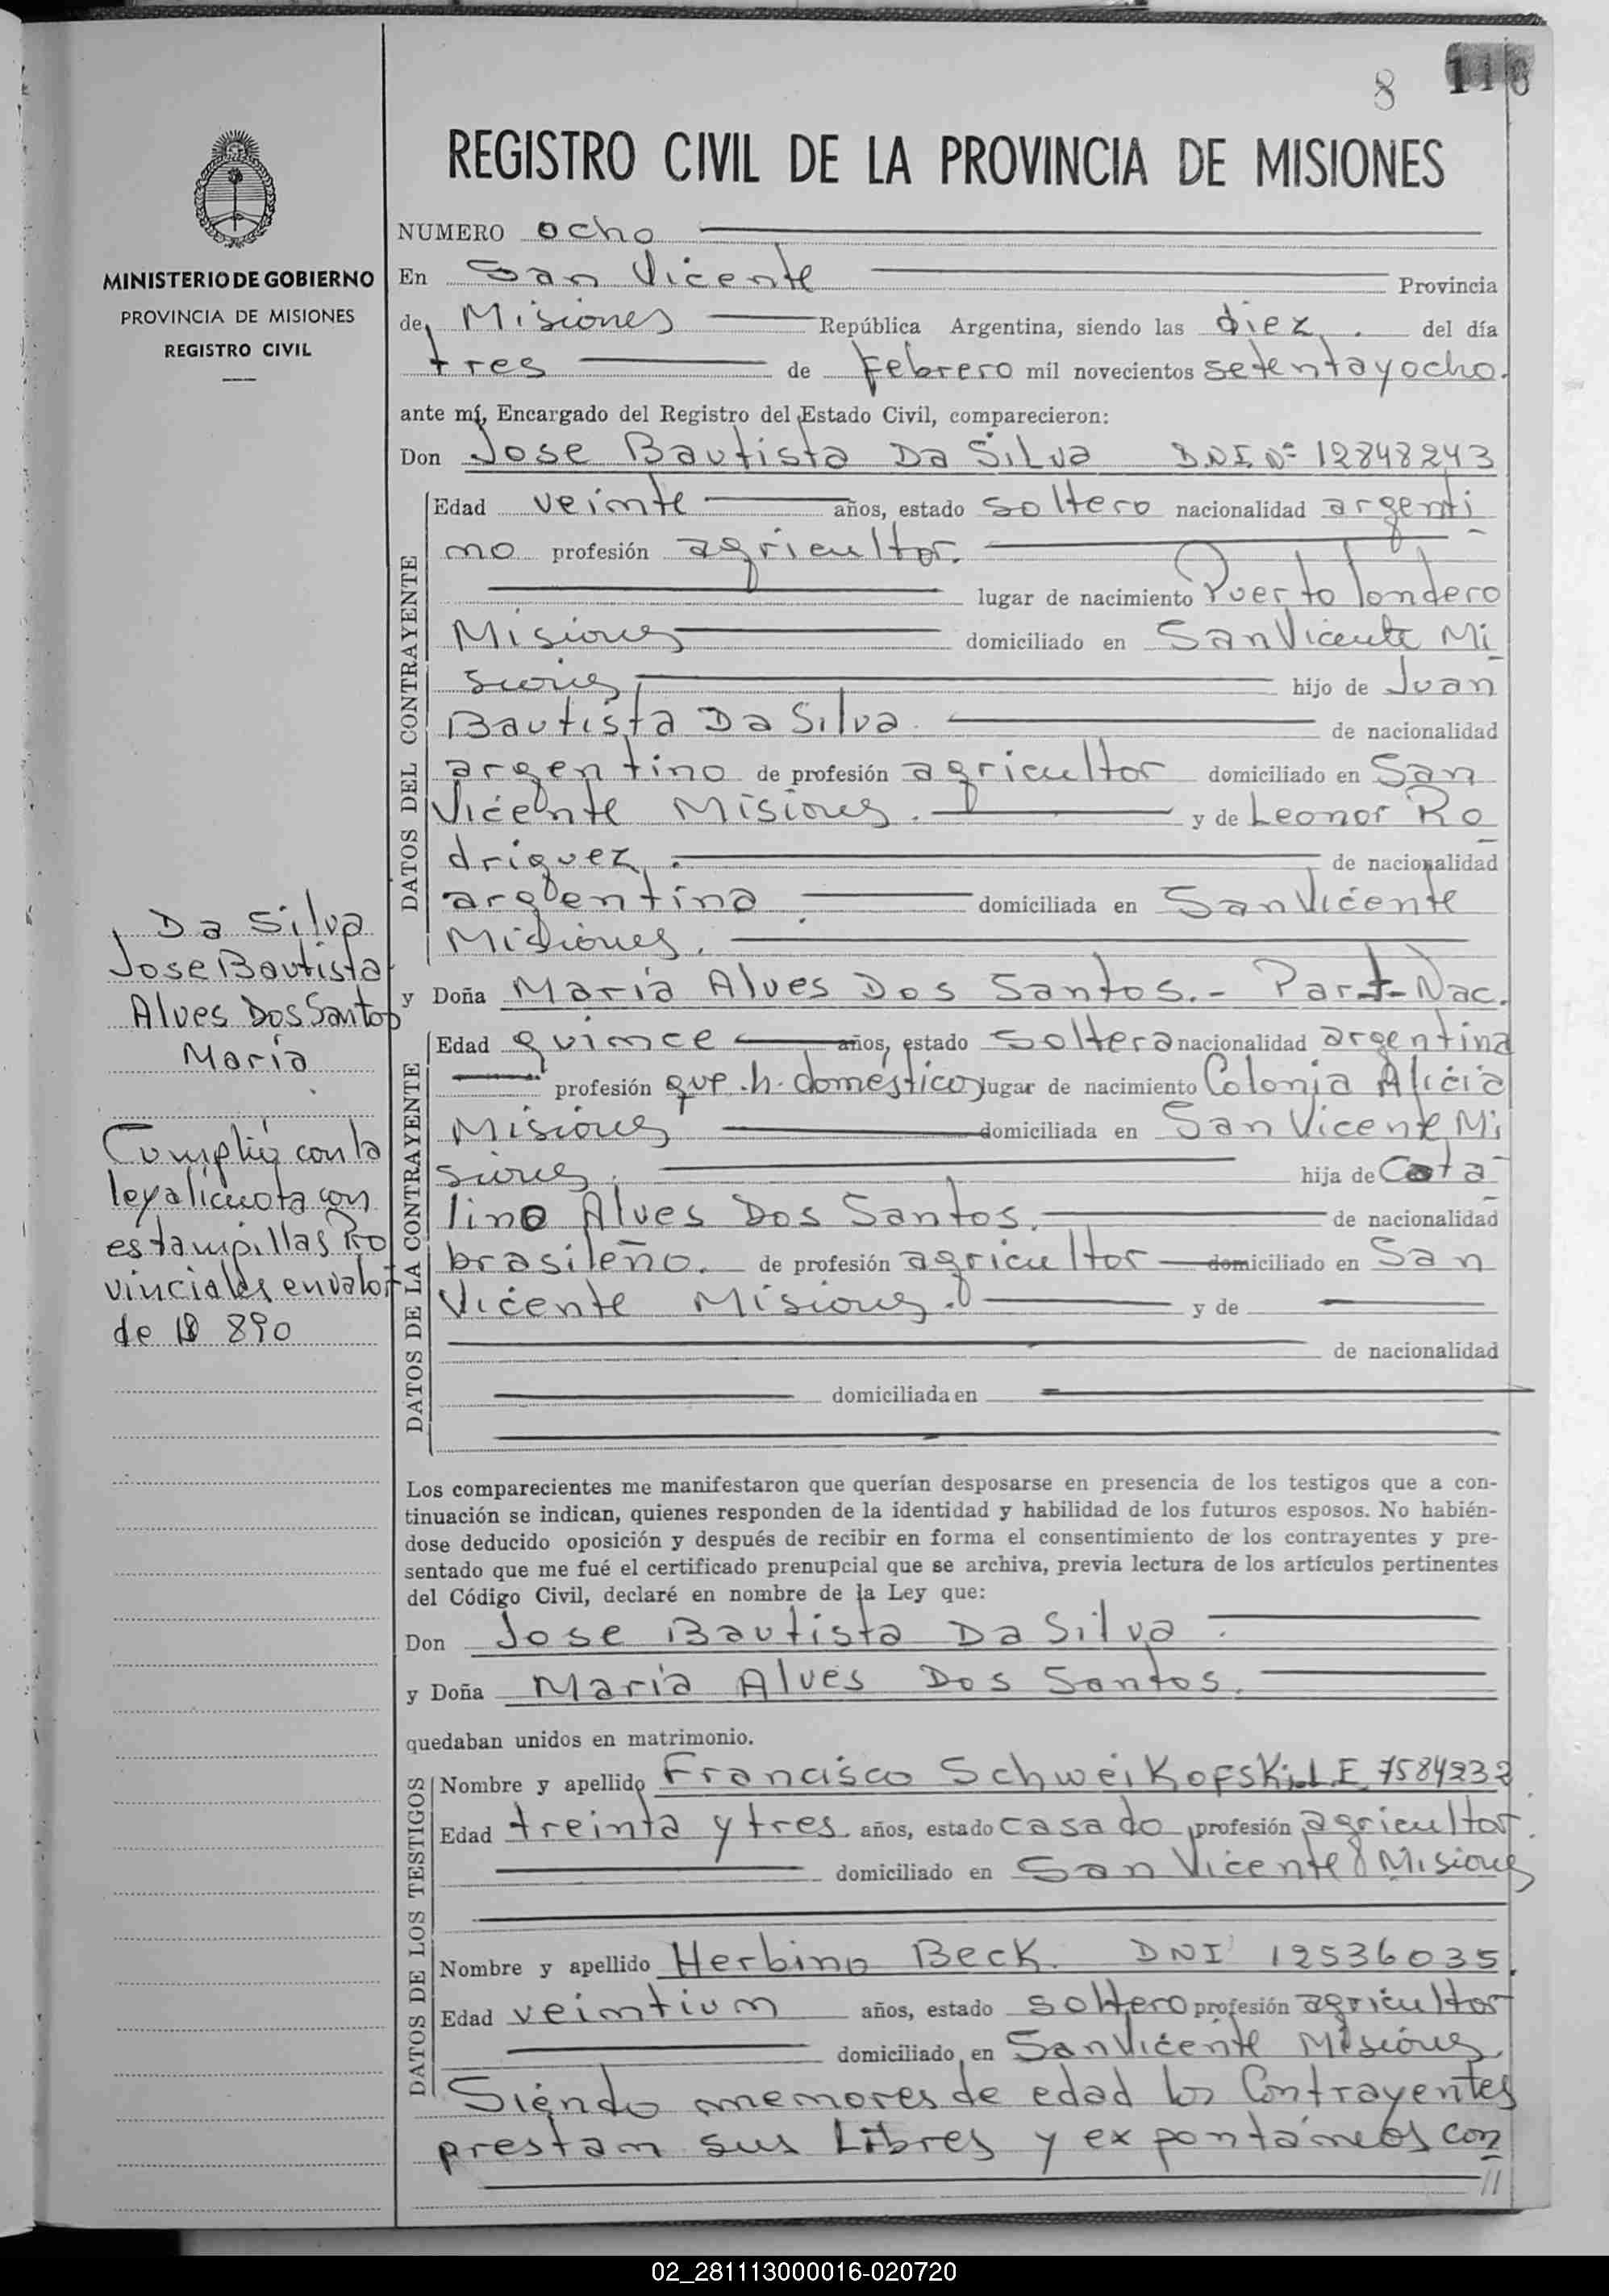 8 118
REGISTRO CIVIL DE LA PROVINCIA DE MISIONES
MINISTERIO DE GOBIERNO
PROVINCIA DE MISIONES
REGISTRO CIVIL
NUMERO ocho
En San Vicente Provincia
de Misiones República Argentina, siendo las diez . del día
tres de Febrero mil novecientos setentayocho.
ante mí, Encargado del Registro del Estado Civil, comparecieron:
Don Jose Bautista Da Silva D.N.I. Nº 12848243
DATOS DEL CONTRAYENTE
Edad veinte años, estado soltero nacionalidad argenti
no profesión agricultor.
lugar de nacimiento Puerto Londero
Misiones domiciliado en San Vicente Mi
siones, hijo de Juan
Bautista Da Silva. de nacionalidad
argentino de profesión agricultor domiciliado en San
Vicente Misiones. y de Leonor Ro
driguez . de nacionalidad
argentina domiciliada en San Vicente
Misiones.
y Doña Maria Alves Dos Santos.- Part-Nac.
DATOS DE LA CONTRAYENTE
Edad quince años, estado soltera nacionalidad argentina
profesión que.h.domésticos lugar de nacimiento Colonia Alicia
Misiones domiciliada en San Vicente Mi
siones. hija de Cata
lino Alves Dos Santos. de nacionalidad
brasileño. de profesión agricultor domiciliado en San
Vicente Misiones. y de
de nacionalidad
domiciliada en
Da Silva
Jose Bautista
Alves Dos Santos
María
Cumplió con la
ley alicuota con
estampillas Pro
vinciales en valor
de 890
Los comparecientes me manifestaron que querían desposarse en presencia de los testigos que a con-
tinuación se indican, quienes responden de la identidad y habilidad de los futuros esposos. No habién-
dose deducido oposición y después de recibir en forma el consentimiento de los contrayentes y pre-
sentado que me fué el certificado prenupcial que se archiva, previa lectura de los artículos pertinentes
del Código Civil, declaré en nombre de la Ley que:
Don Jose Bautista Da Silva .
y Doña Maria Alves Dos Santos.
quedaban unidos en matrimonio.
DATOS DE LOS TESTIGOS
Nombre y apellido Francisco Schweikofski L.E 7584232
Edad treinta y tres. años, estado casado profesión agricultor.
domiciliado en San Vicente Misiones
Nombre y apellido Herbino Beck. DNI 12536035.
Edad veintiun años, estado soltero profesión agricultor
domiciliado en San Vicente Misiones.
Siendo menores de edad los Contrayentes
prestan sus Libres y expontáneos con
//
02_281113000016-020720